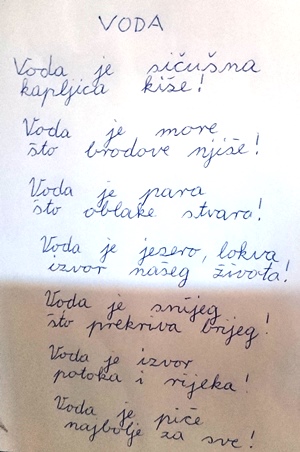 VODA
Voda je sićušna
kapljica kiše!
Voda je more
što brodove njiše!
Voda je para
što oblake stvara!
Voda je jezero, lokva
izvor našeg života!
Voda je snijeg
što prekriva brijeg!
Voda je izvor
potoka i rijeka!
Voda je piće
najbolje za sve!